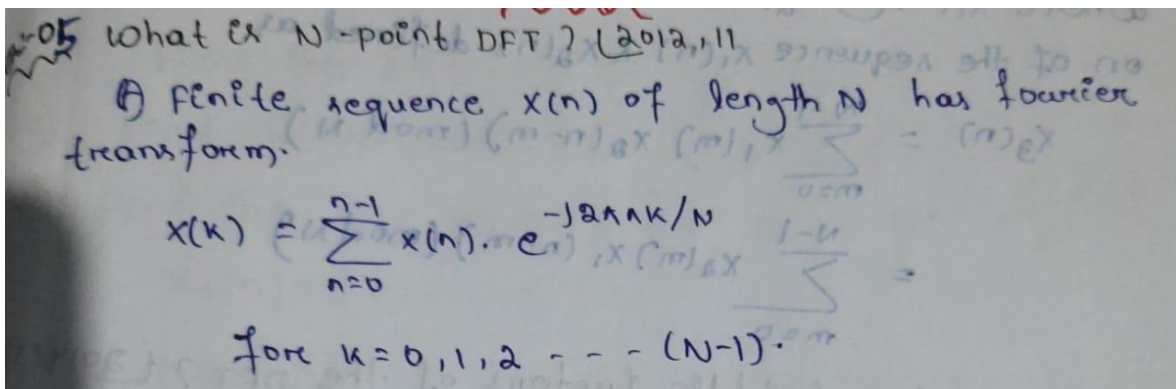 05 What is N-point DFT ? (2012,11
A finite sequence x(n) of length N has fourier
transform.
X(K) = \sum_{n=0}^{n-1} x(n). e^{-j2πnK/N}
fore K=0,1,2 - - - (N-1).